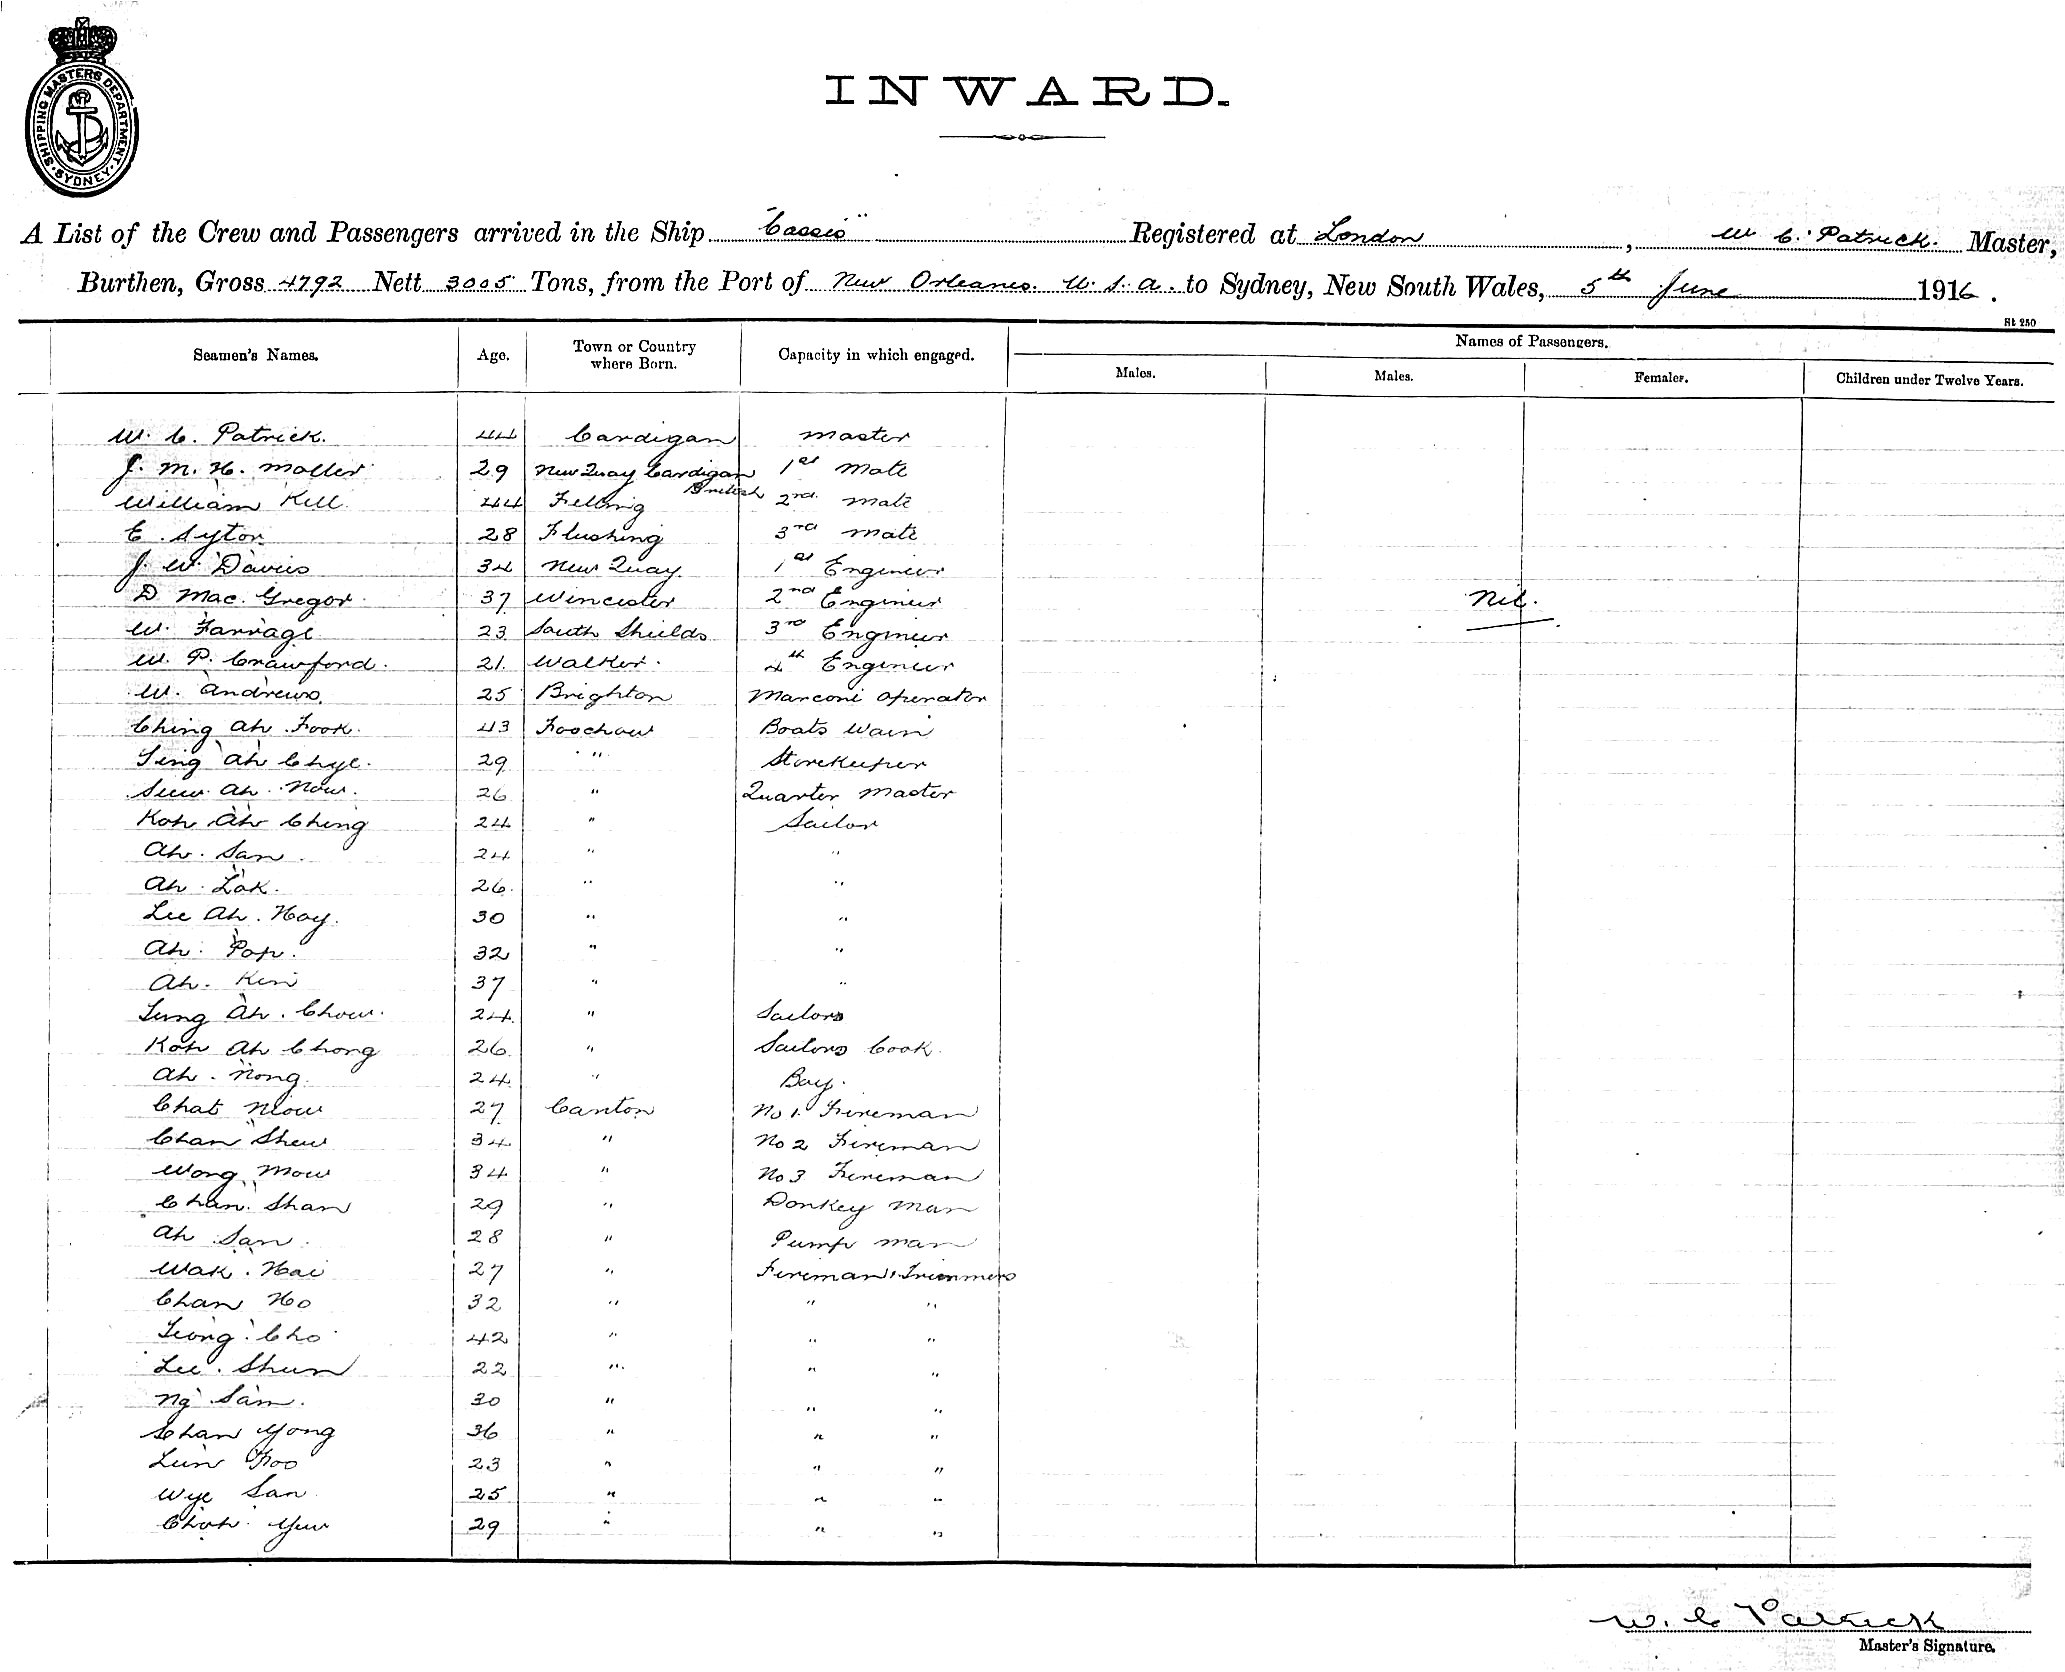 SHIPPING MASTERS DEPARTMENT. SYDNEY.
INWARD.
A List of the Crew and Passengers arrived in the Ship "Cassis" Registered at London, W C. Patrick. Master,
Burthen, Gross 4792 Nett 3005 Tons, from the Port of New Orleans. U. S. A. to Sydney, New South Wales, 5th June 1916.
St 250
Seamen's Names. Age. Town or Country where Born. Capacity in which engaged. Names of Passengers.
Males. Males. Females. Children under Twelve Years.
W. C. Patrick. 44 Cardigan Master
J. M. H. Moller 29 New Quay Cardigan 1st Mate
William Kell 44 Felling British 2nd Mate
E. Sytor 28 Flushing 3rd Mate
J. W. Davies 34 New Quay. 1st Engineer
D Mac. Gregor 37 Wincester 2nd Engineer Nil.
W. Farrage 23 South Shields 3rd Engineer
W. P. Crawford. 21. Walker. 4th Engineer
W. Andrews. 25 Brighton Marconi Operator
Ching Ah Fook. 43 Foochow Boats Wain
Ting Ah Chye. 29 " Storekeeper
Siew Ah. Now. 26 " Quarter Master
Koh Ah Ching 24 " Sailor
Ah. San 24 " "
Ah. Lok. 26. " "
Lee Ah. Hoy. 30 " "
Ah. Pop. 32 " "
Ah. Kin 37 " "
Tung Ah. Chow. 24 " Sailors
Koh Ah Chong 26 " Sailors Cook.
Ah. Nong. 24 " Boy.
Chat Miow 27 Canton No 1. Fireman
Chan Shew 34 " No 2 Fireman
Wong Mow 34 " No 3 Fireman
Chan. Shan 29 " Donkey Man
Ah San 28 " Pump man
Wak. Hai 27 " Fireman, Trimmers
Chan Ho 32 " " "
Leong Cho 42 " " "
Lee. Shun 22 " " "
Ng Sam. 30 " " "
Chan Yong 36 " " "
Lun Foo 23 " " "
Wye San 25 " " "
Choh. Yew 29 " " "
W. C Patrick
Master's Signature.